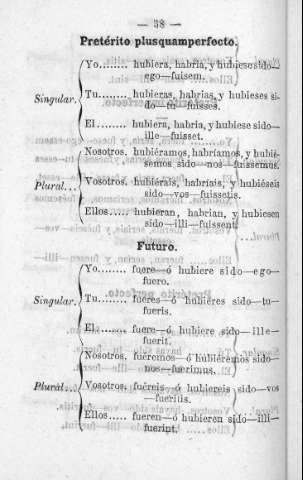 — 38 —
Pretérito plusquamperfecto.
Singular.
Yo........ hubiera, habria, y hubiese sido—
ego—fuisem.
Tu........ hubieras, habrias, y hubieses si-
do—tu—fuisses.
El........ hubiera, habria, y hubiese sido—
ille—fuisset.
Plural...
Nosotros. hubiéramos, habríamos, y hubié-
semos sido—nos—fuissemus.
Vosotros. hubiérais, habríais, y hubiéseis
sido—vos—fuissetis.
Ellos..... hubieran, habrian, y hubiesen
sido—illi—fuissent.
Futuro.
Singular.
Yo........ fuere—ó hubiere sido—ego—
fuero.
Tu........ fueres—ó hubiéres sido—tu—
fueris.
El........ fuere—ó hubiere sido—ille—
fuerit.
Plural...
Nosotros. fueremos—ó hubiéremos sido—
nos—fuerimus.
Vosotros. fuéreis—ó hubiereis sido—vos
—fueritis.
Ellos..... fueren—ó hubieren sido—illi—
fuerint.